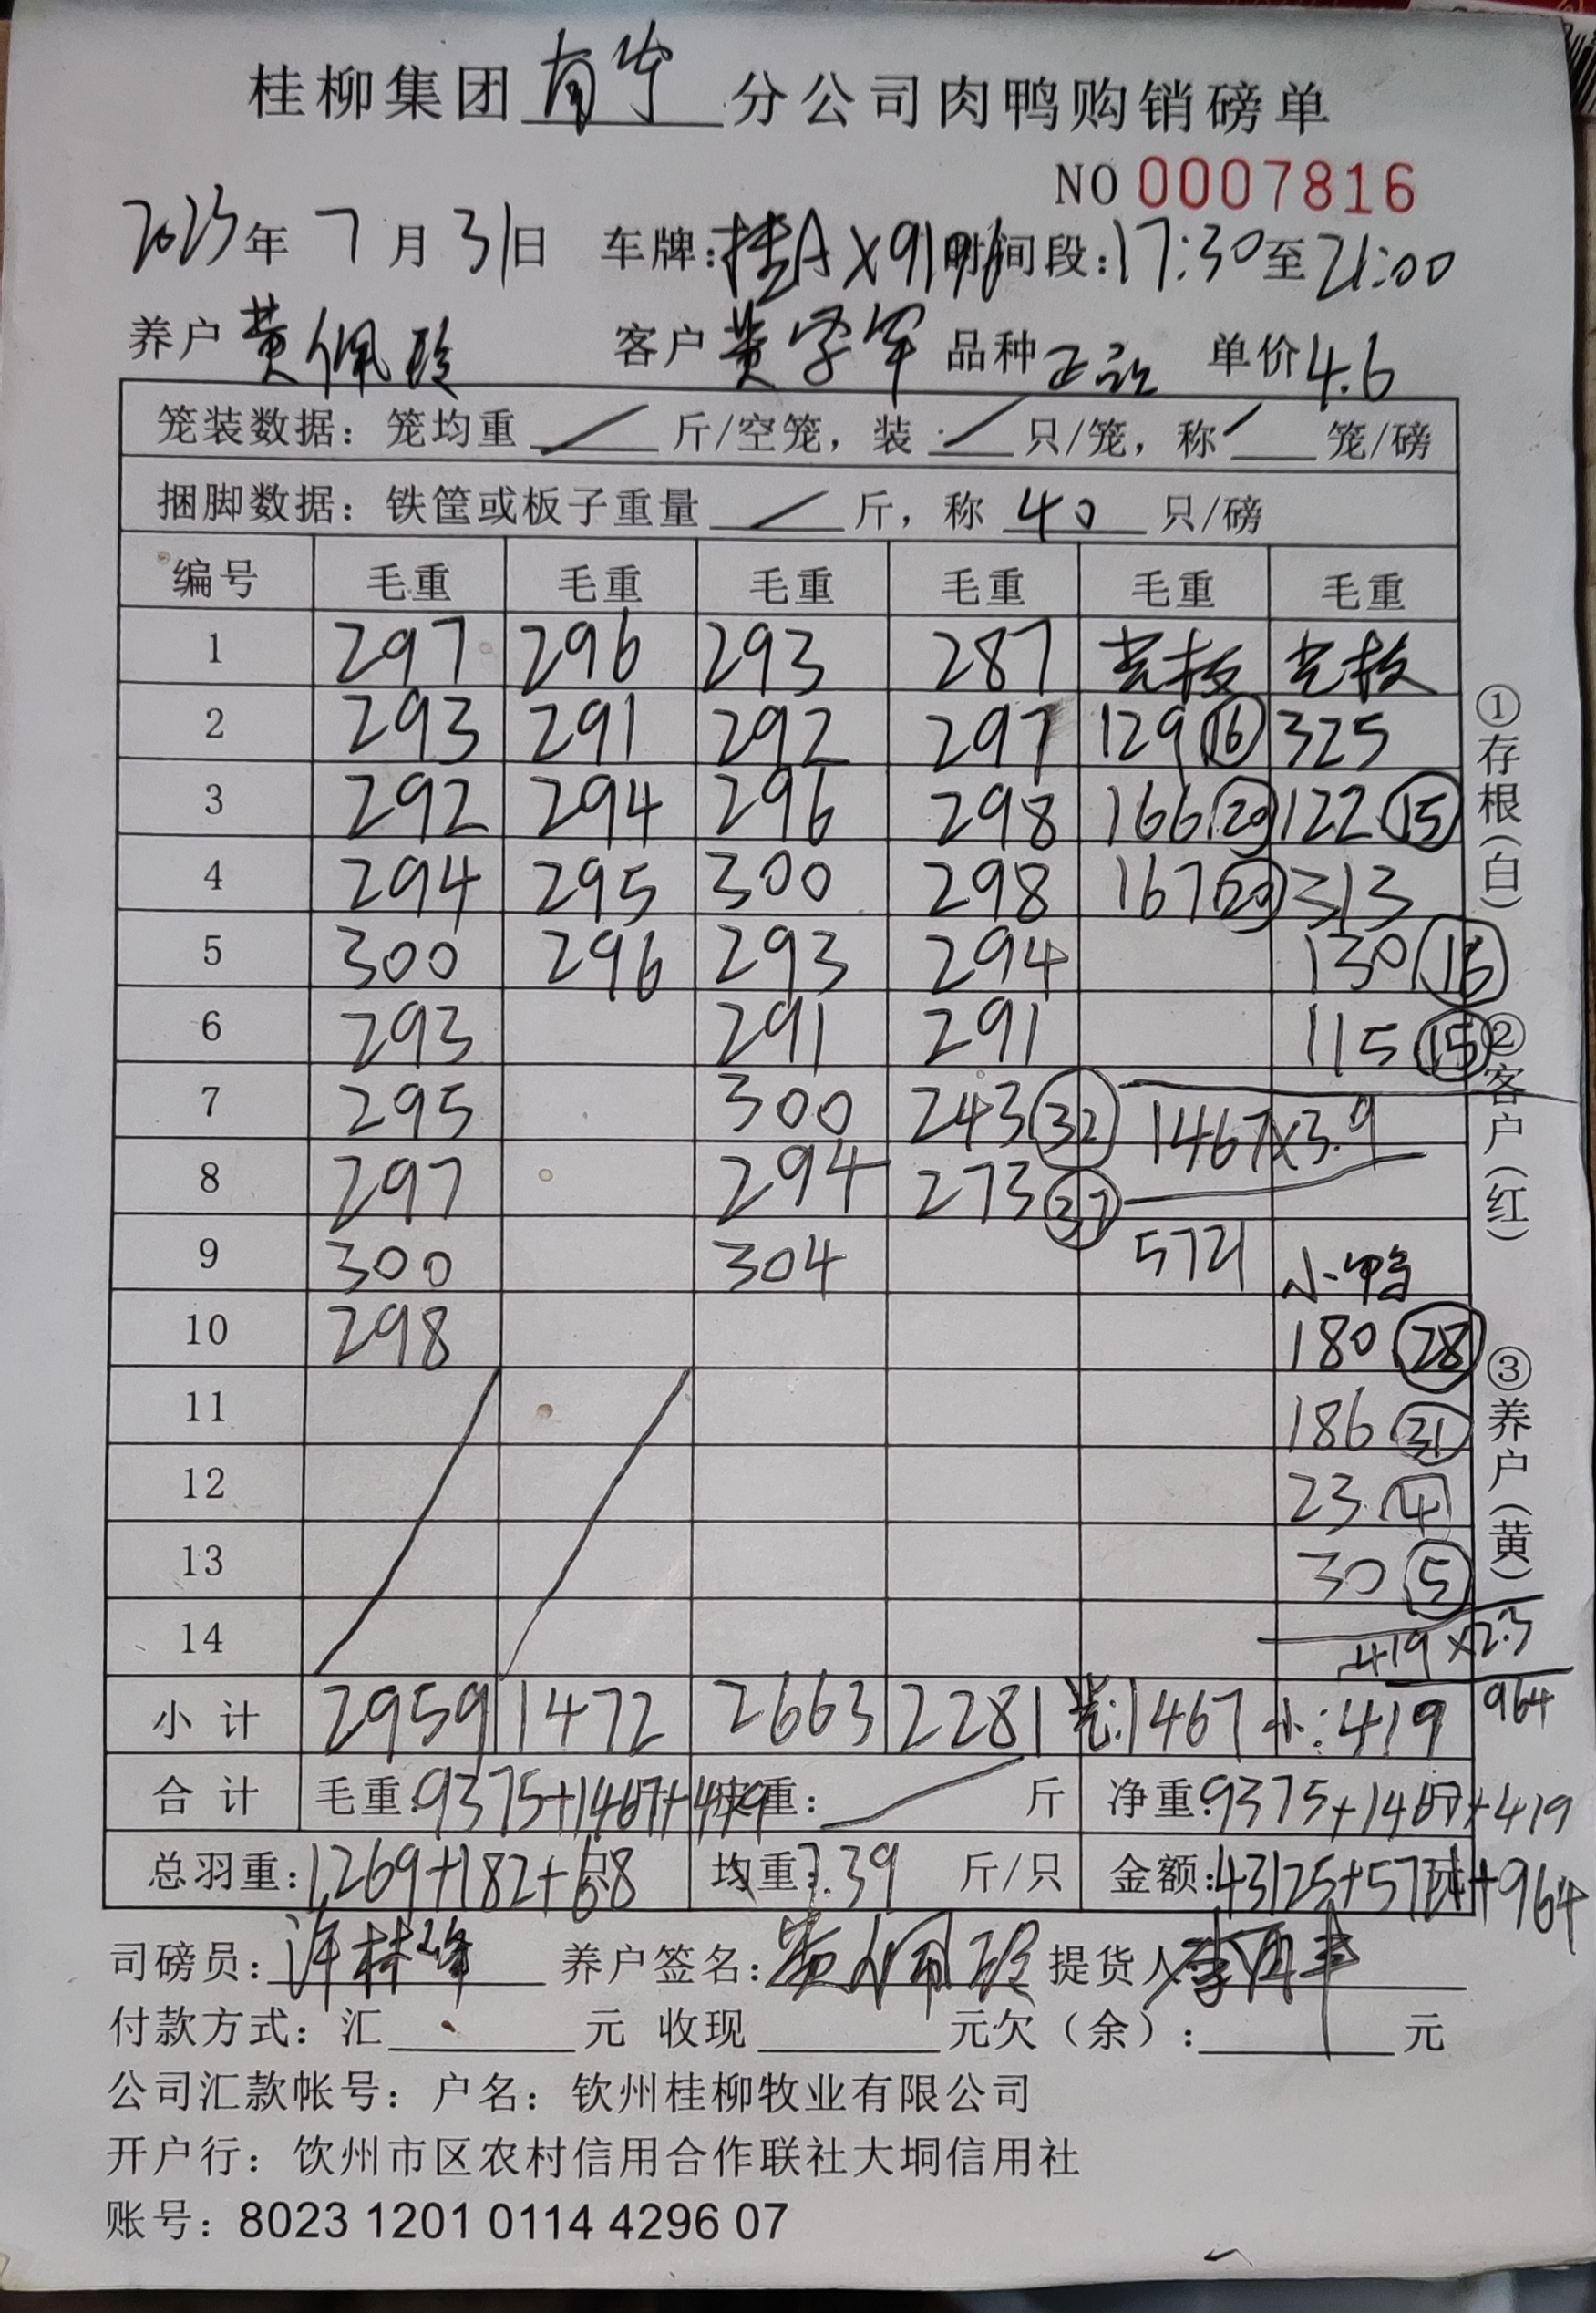 桂柳集团南宁分公司肉鸭购销磅单
NO 0007816
2023年 7月 31日 车牌:桂A X9196 时间段:17:30至21:00
养户 黄佩玲 客户 黄学军 品种 单价4.6
笼装数据: 笼均重 / 斤/空笼, 装 / 只/笼, 称 / 笼/磅
捆脚数据: 铁筐或板子重量 / 斤, 称 40 只/磅
编号 毛重 毛重 毛重 毛重 毛重 毛重
1 297 296 293 287 光板 光板
2 293 291 292 297 129 16 325
3 292 294 296 298 166 20 122 15
4 294 295 300 298 167 20 313
5 300 296 293 294 130 16
6 293 291 291 115 15
7 295 300 243 32 1467×3.9
8 297 294 273 37
9 300 304 5721 小鸭
10 298 180 28
11 186 31
12 23 4
13 30 5
14 419×2.3
964
小计 2959 1472 2663 2281 光:1467 小:419
合计 毛重:9375+1467+419 皮重: / 斤 净重:9375+1467+419
总羽重:1269+182+68 均重:7.39 斤/只 金额:43125+5721+964
司磅员:许桂峰 养户签名:黄佩玲 提货人
付款方式: 汇 元 收现 元欠(余): 元
公司汇款帐号: 户名: 钦州桂柳牧业有限公司
开户行: 饮州市区农村信用合作联社大垌信用社
账号: 8023 1201 0114 4296 07
①存根(白)
②客户(红)
③养户(黄)